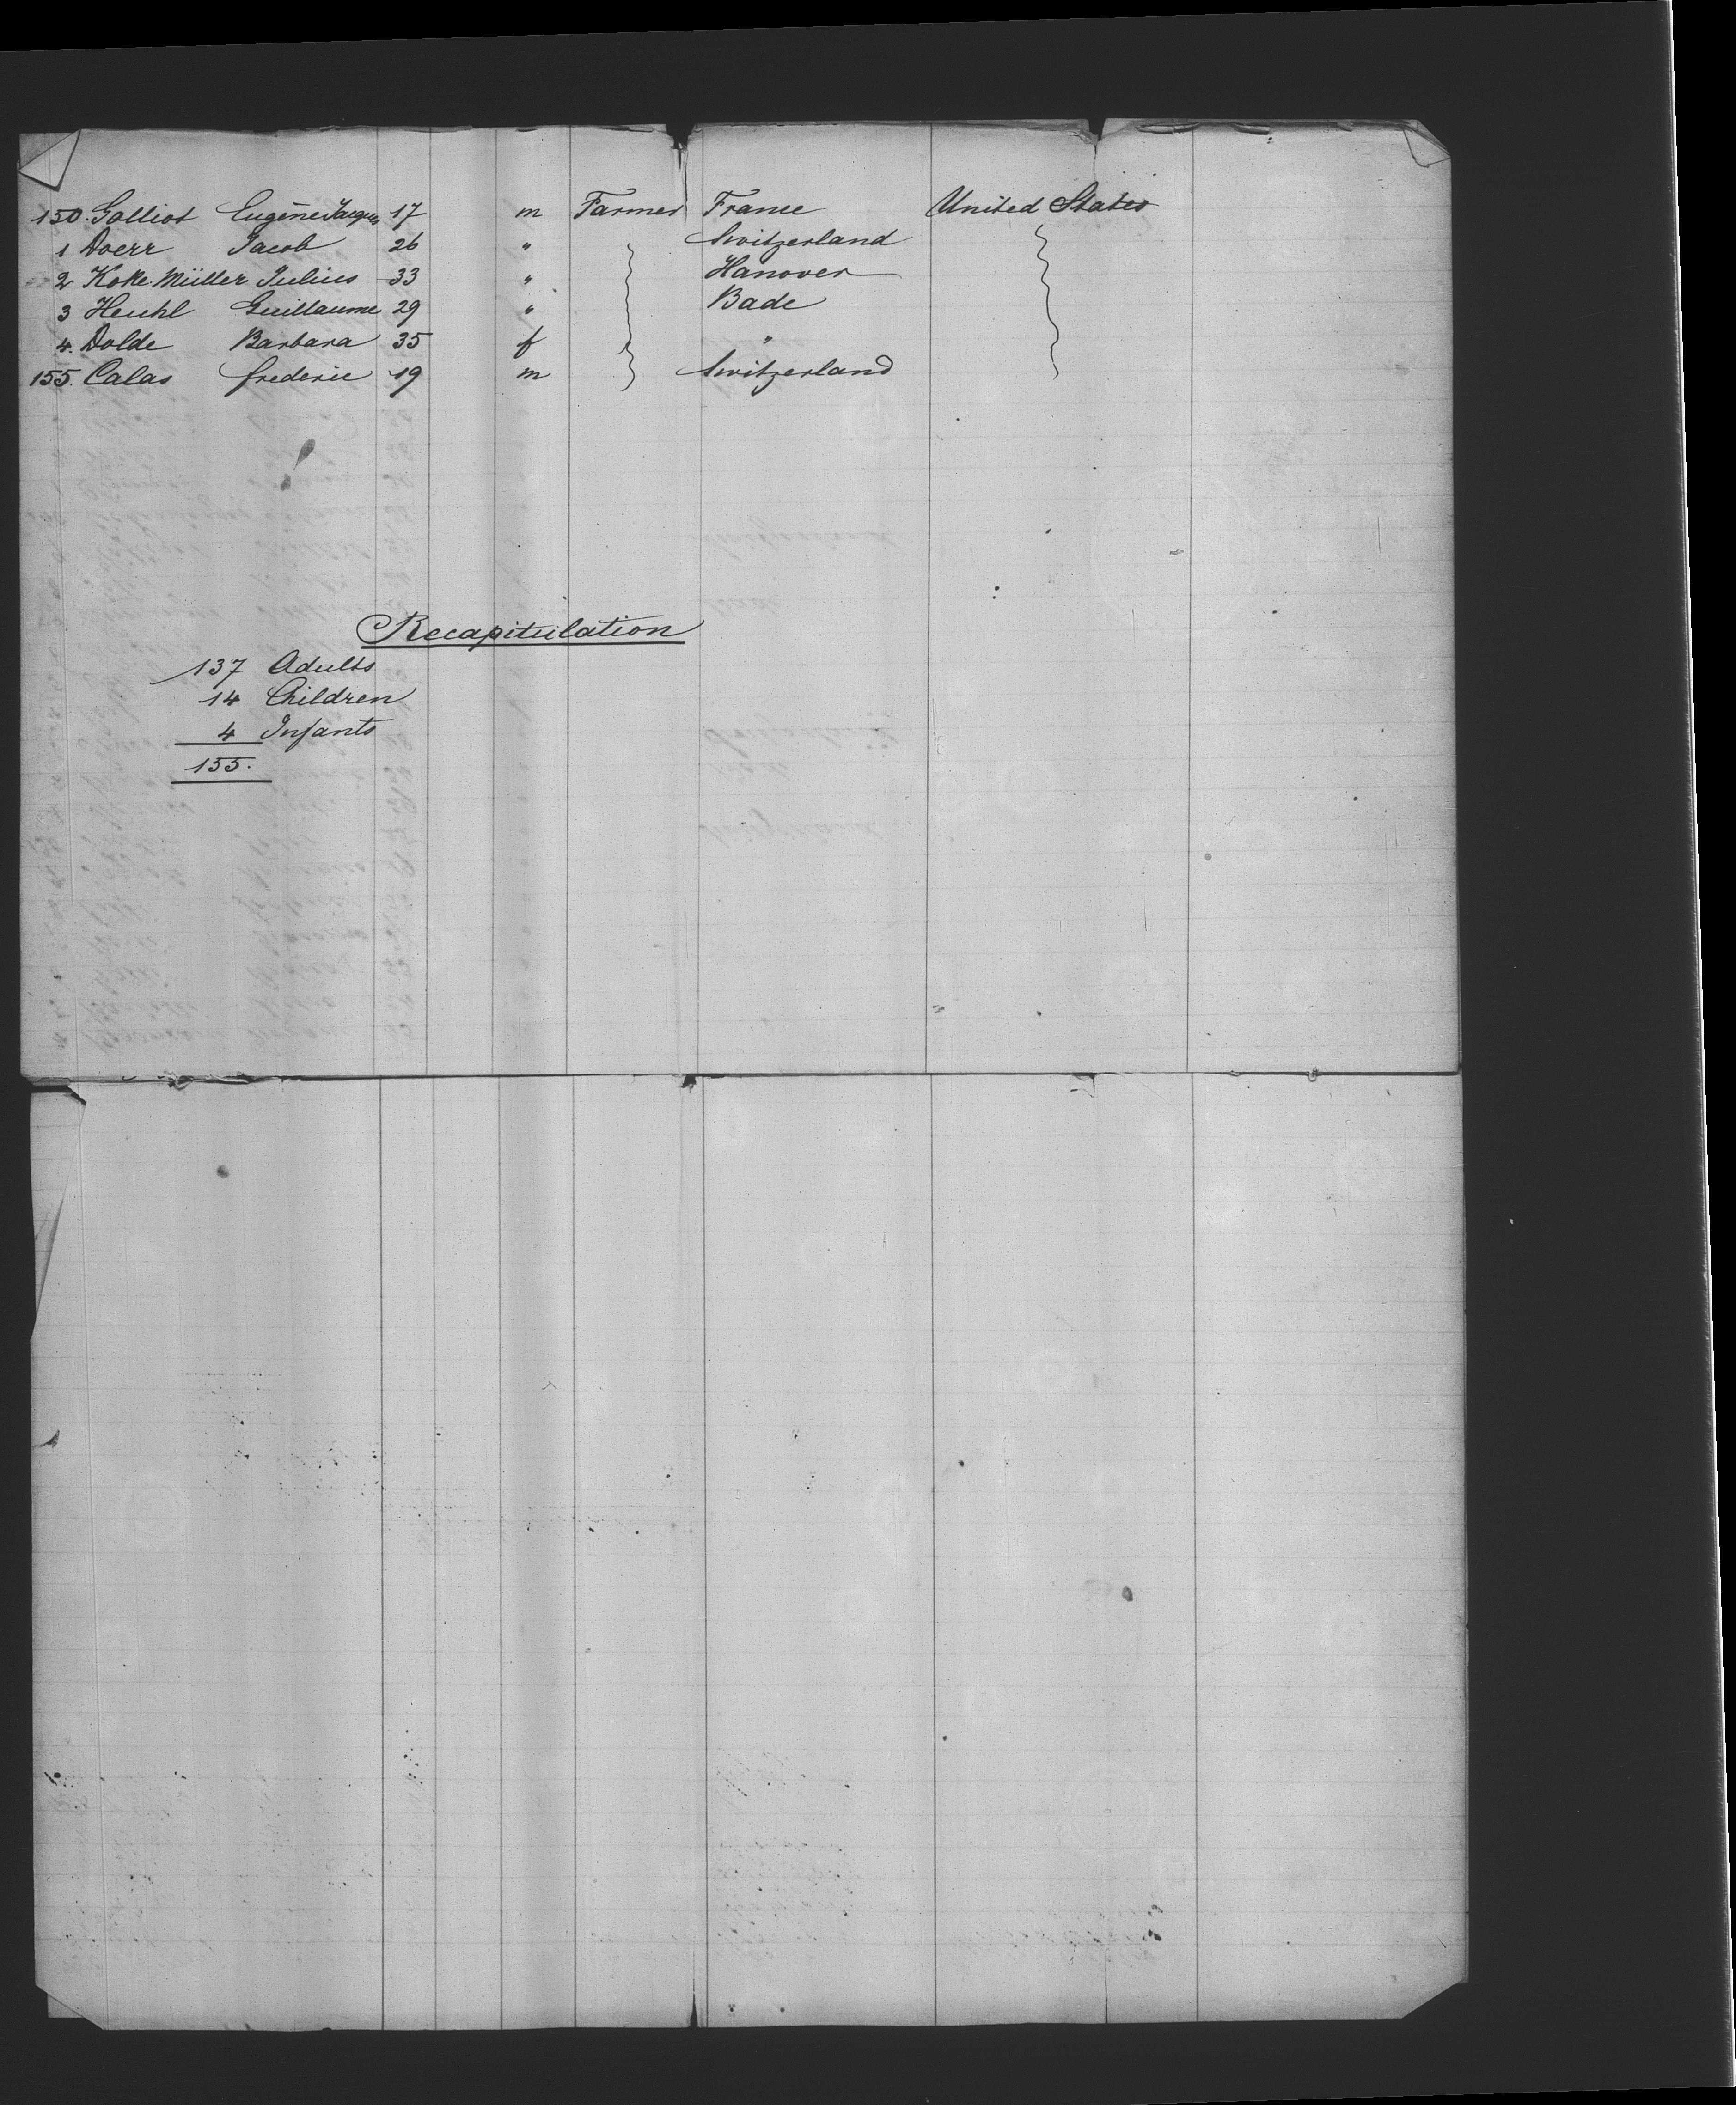 150. Galliot Eugène Jacques 17 m Farmer France United States
1 Doerr Jacob 26 " Switzerland
2 Koke Müller Julius 33 " Hanover
3 Heuhl Guillaume 29 " Bade
4. Dolde Barbara 35 f "
155. Calas frederic 19 m Switzerland
Recapitulation
137 Adults
14 Children
4 Infants
155.